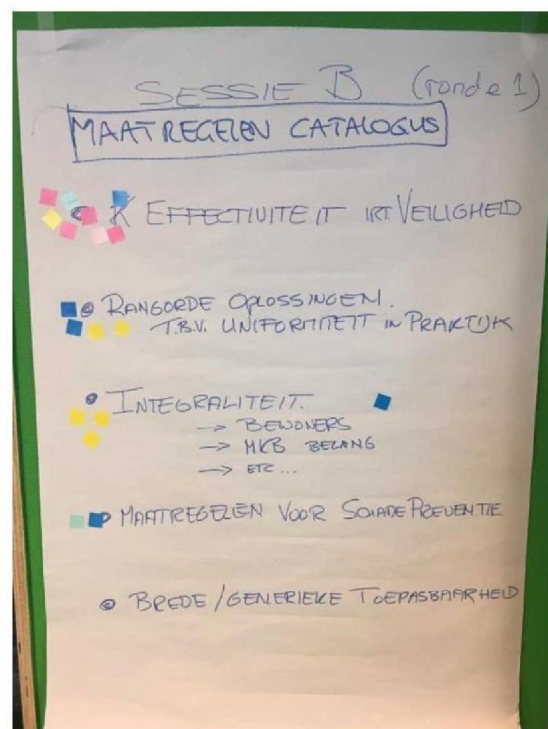 SESSIE B (ronde 1)
MAATREGELEN CATALOGUS
K EFFECTIVITEIT IRT VEILIGHEID
RANGORDE OPLOSSINGEN.
T.B.V. UNIFORMITEIT IN PRAKTIJK
INTEGRALITEIT.
→ BEWONERS
→ MKB BELANG
→ ETC...
MAATREGELEN VOOR SCHADE PREVENTIE
BREDE / GENERIEKE TOEPASBAARHEID